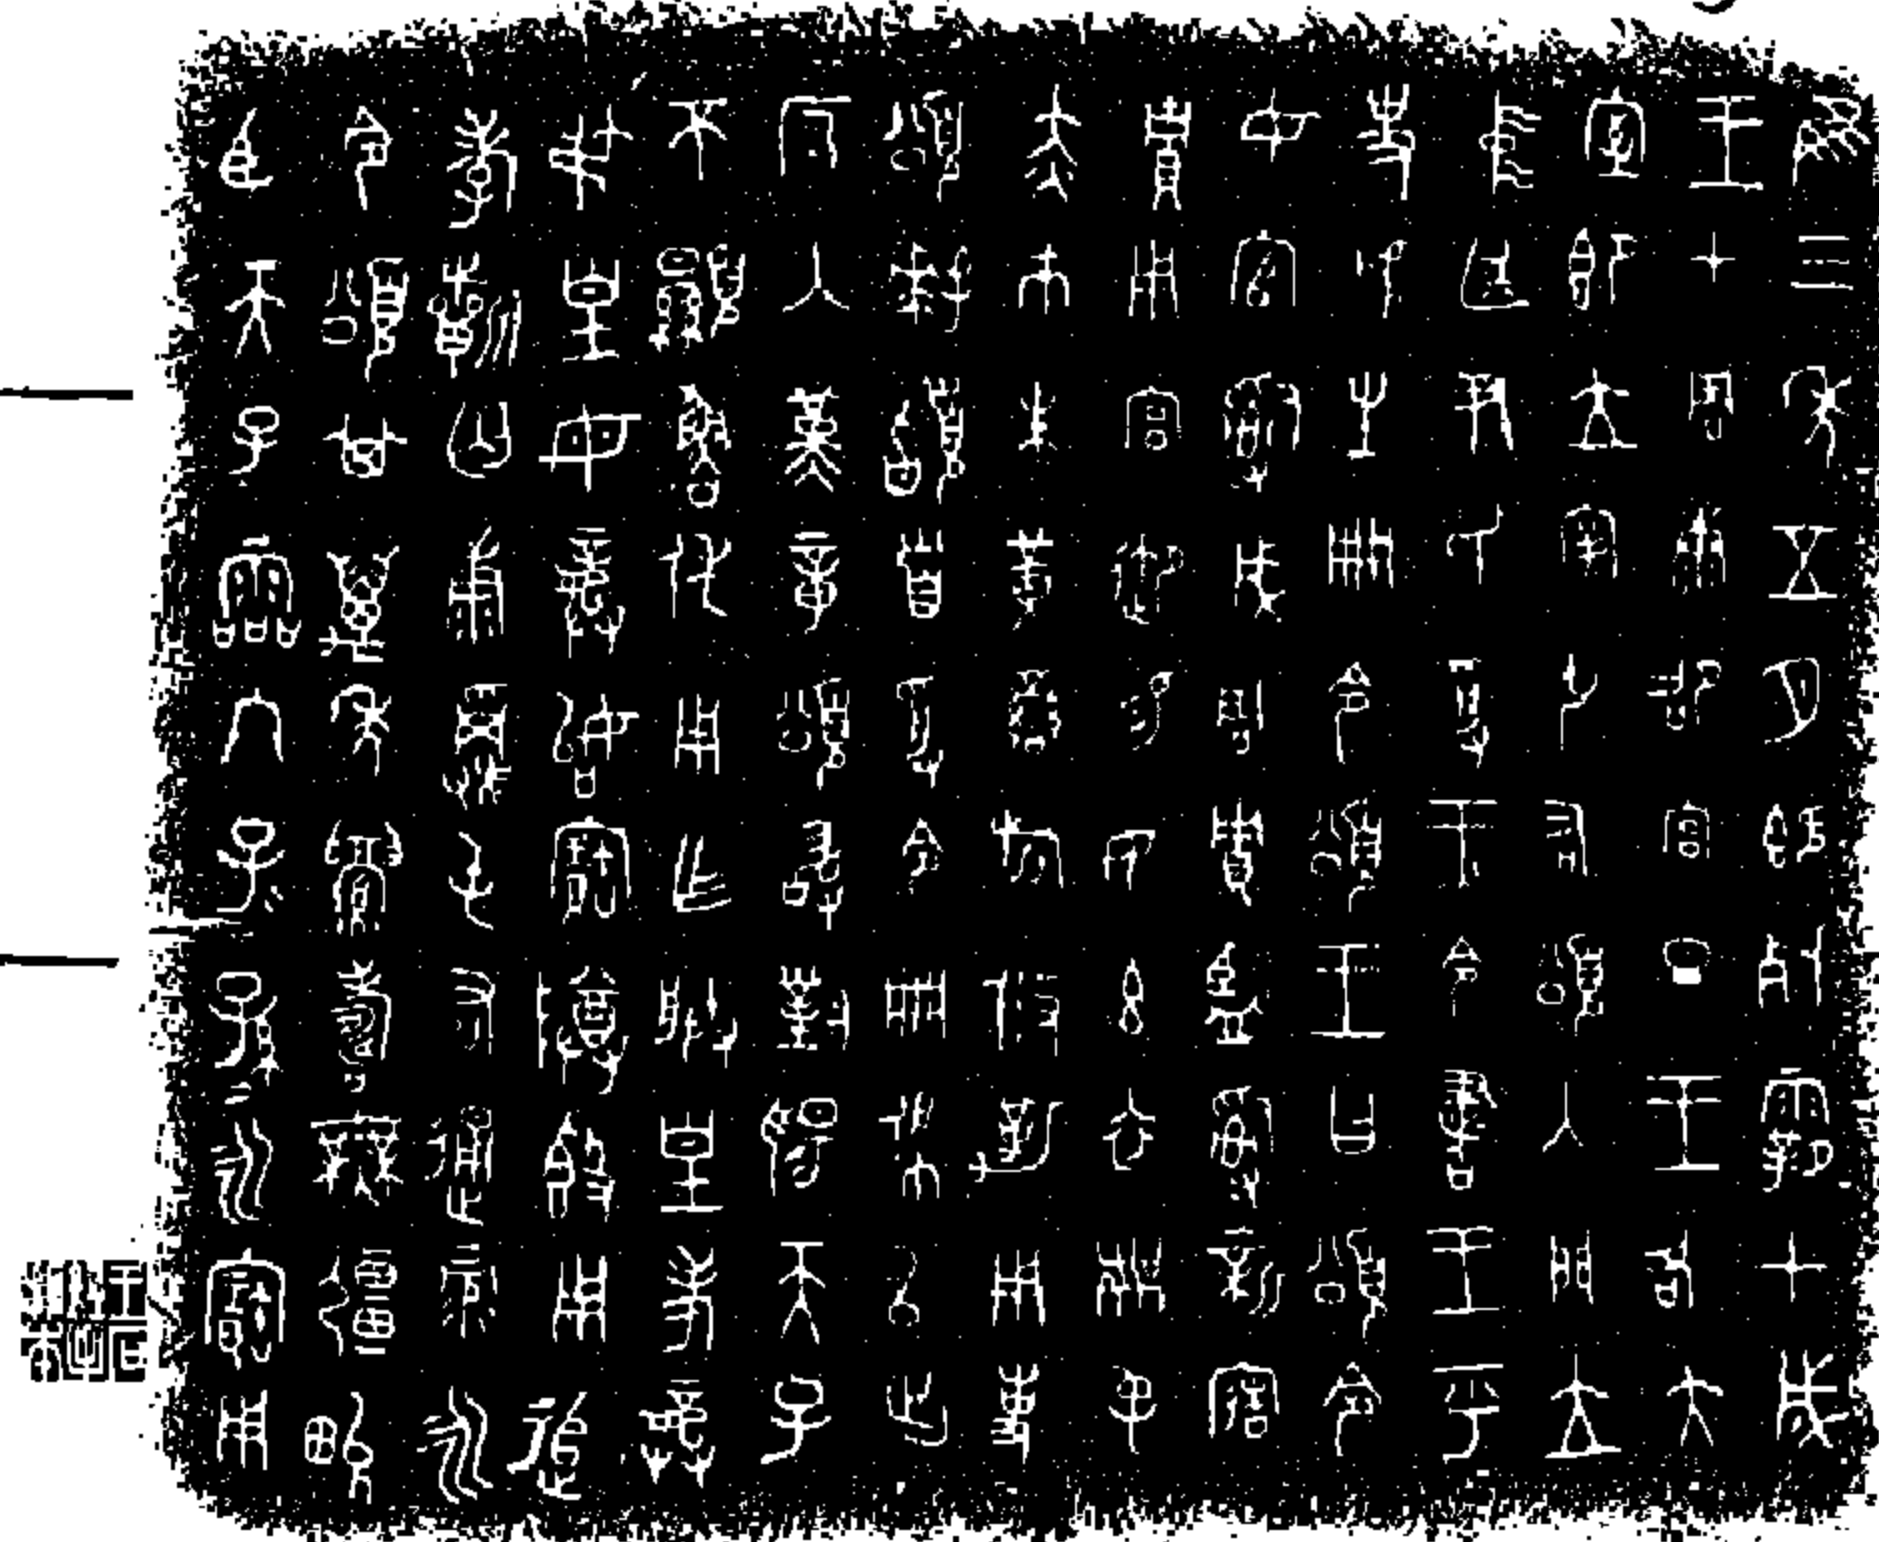 隹三年五月既死霸甲戌
王才周康卲宮旦王各大
室即立宰引右頌入門立
中廷尹氏受王令書王乎
史虢生冊令頌王曰頌令
女官𤔲成周貯監𤔲新造
貯用宮御易女玄衣黹屯
赤巿朱黃䜌旂攸勒用事
頌拜𩒨首受令冊佩以出
反入堇章頌敢對揚天子
不顯魯休用乍朕皇考龏
叔皇母龏始寶尊簋用追
孝𣄨匄康𩫏屯右通彔永
令頌其萬年眉壽無疆畯
臣天子霝冬子=孫=永寶用